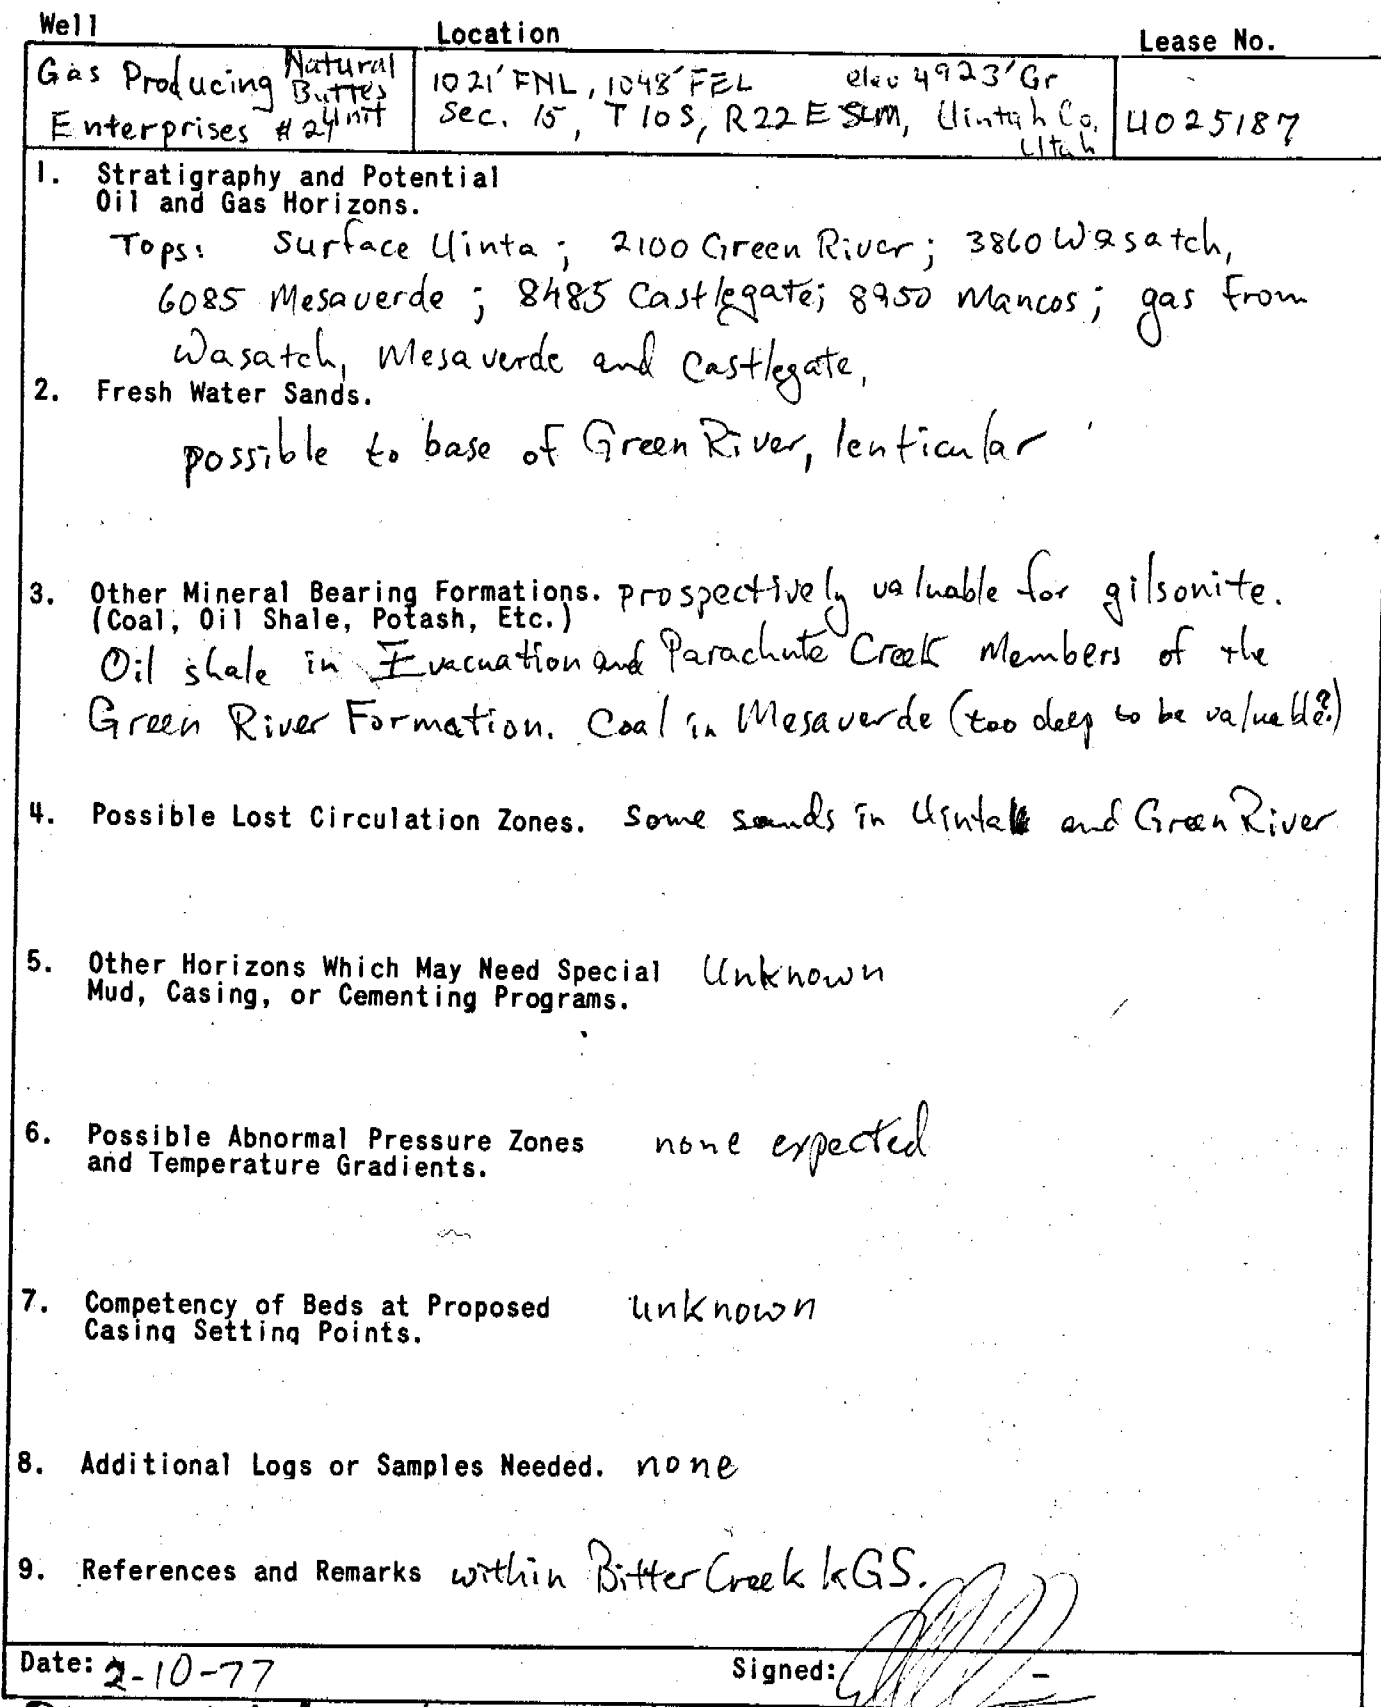 Well Location Lease No.
Gas Producing Natural Buttes Unit
Enterprises #24
1021' FNL, 1048' FEL elev 4923' Gr
Sec. 15, T 10 S, R 22 E SLM, Uintah Co,
Utah
U025187
1. Stratigraphy and Potential
Oil and Gas Horizons.
Tops: Surface Uinta; 2100 Green River; 3860 Wasatch,
6085 Mesaverde; 8485 Castlegate; 8950 Mancos; gas from
Wasatch, Mesaverde and Castlegate,
2. Fresh Water Sands.
possible to base of Green River, lenticular
3. Other Mineral Bearing Formations. prospectively valuable for gilsonite.
(Coal, Oil Shale, Potash, Etc.)
Oil shale in Evacuation and Parachute Creek Members of the
Green River Formation. Coal in Mesaverde (too deep to be valuable?)
4. Possible Lost Circulation Zones. Some sands in Uinta and Green River
5. Other Horizons Which May Need Special Unknown
Mud, Casing, or Cementing Programs.
6. Possible Abnormal Pressure Zones none expected
and Temperature Gradients.
7. Competency of Beds at Proposed unknown
Casing Setting Points.
8. Additional Logs or Samples Needed. none
9. References and Remarks within Bitter Creek KGS.
Date: 2-10-77 Signed: